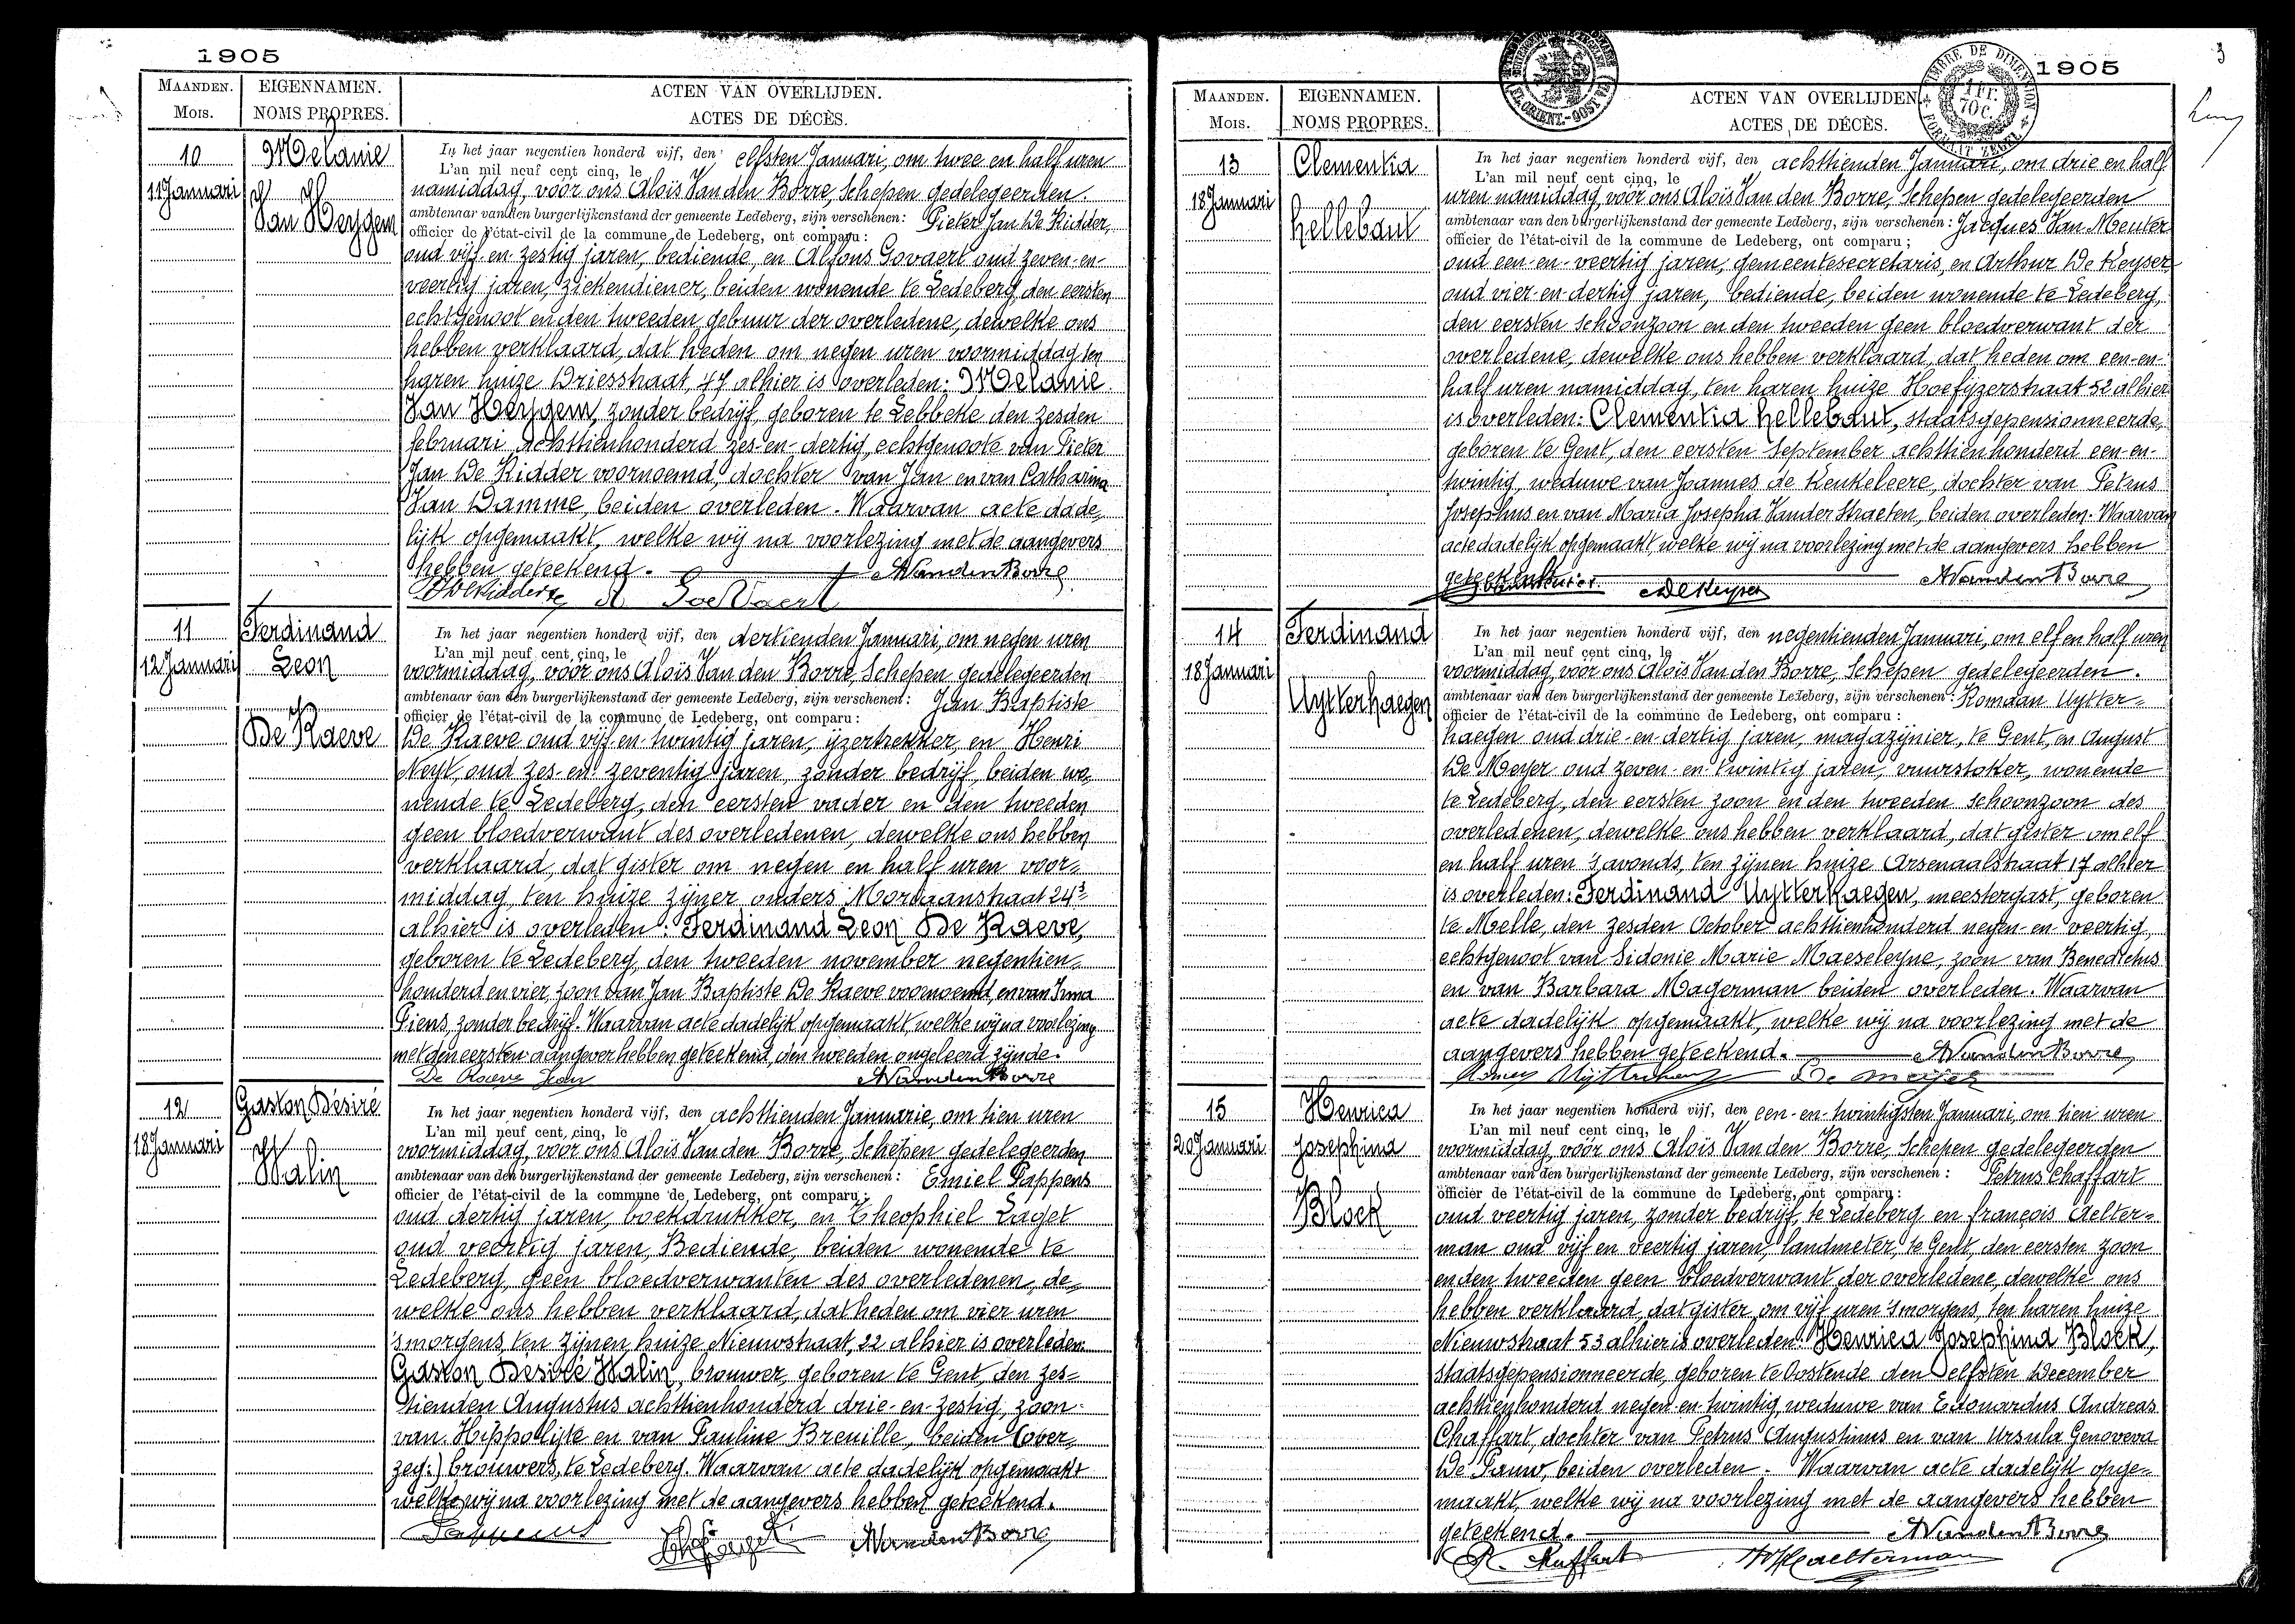 1905
MAANDEN. EIGENNAMEN. ACTEN VAN OVERLIJDEN.
MOIS. NOMS PROPRES. ACTES DE DÉCÈS.
10 Melanie
11 Januari Van Heygem
In het jaar negentien honderd vijf, den elfsten Januari, om twee en half uren
L'an mil neuf cent cinq, le
namiddag, voor ons Aloïs Van den Borre, Schepen gedelegeerden.
ambtenaar van den burgerlijkenstand der gemeente Ledeberg, zijn verschenen: Pieter Jan De Ridder,
officier de l'état-civil de la commune de Ledeberg, ont comparu:
oud vijf-en-zestig jaren, bediende, en Alfons Govaert oud zeven-en-
veertig jaren, ziekendiener, beiden wonende te Ledeberg, den eersten
echtgenoot en den tweeden gebuur der overledene, dewelke ons
hebben verklaard, dat heden om negen uren voormiddag ten
haren huize Driesstraat, 47 alhier is overleden: Melanie
Van Heygem, zonder bedrijf, geboren te Lebbeke den zesden
februari achttienhonderd zes-en-dertig, echtgenoote van Pieter
Jan De Ridder voornoemd, dochter van Jan en van Catharina
Van Damme, beiden overleden. Waarvan acte dade=
lijk opgemaakt, welke wij na voorlezing met de aangevers
hebben geteekend. AVandenBorre
A Goevaert
11 Ferdinand
12 Januari Leon
De Raeve
In het jaar negentien honderd vijf, den dertienden Januari, om negen uren
L'an mil neuf cent cinq, le
voormiddag, voor ons Aloïs Van den Borre, Schepen gedelegeerden
ambtenaar van den burgerlijkenstand der gemeente Ledeberg, zijn verschenen: Jan Baptiste
officier de l'état-civil de la commune de Ledeberg, ont comparu:
De Raeve oud vijf-en-twintig jaren, ijzertrekker, en Henri
Neyt, oud zes-en-zeventig jaren, zonder bedrijf, beiden wo=
nende te Ledeberg, den eersten vader en den tweeden
geen bloedverwant des overledenen, dewelke ons hebben
verklaard, dat gister om negen en half uren voor=
middag, ten huize zijner ouders Moriaanstraat 24³
alhier is overleden: Ferdinand Leon De Raeve,
geboren te Ledeberg, den tweeden november negentien=
honderd en vier, zoon van Jan Baptiste De Raeve voornoemd, en van Irma
Piens, zonder bedrijf. Waarvan acte dadelijk opgemaakt, welke wij na voorlezing
met den eersten aangever hebben geteekend, den tweeden ongeleerd zijnde.
De Raeve Jean AVandenBorre
12 Gaston Désiré
18 Januari Halin
In het jaar negentien honderd vijf, den achttienden Januarie, om tien uren
L'an mil neuf cent cinq, le
voormiddag, voor ons Aloïs Van den Borre, Schepen gedelegeerden
ambtenaar van den burgerlijkenstand der gemeente Ledeberg, zijn verschenen: Emiel Pappens
officier de l'état-civil de la commune de Ledeberg, ont comparu:
oud dertig jaren, boekdrukker, en Theophiel Laget
oud veertig jaren, Bediende, beiden wonende te
Ledeberg, geen bloedverwanten des overledenen, de=
welke ons hebben verklaard, dat heden om vier uren
'smorgens, ten zijnen huize Nieuwstraat, 22 alhier is overleden:
Gaston Désiré Halin, brouwer, geboren te Gent, den zes=
tienden Augustus achttienhonderd drie-en-zestig, zoon
van Hippolijte en van Pauline Breuille, beiden (over=
zeg:) brouwers, te Ledeberg. Waarvan acte dadelijk opgemaakt
welke wij na voorlezing met de aangevers hebben geteekend.
Pappens AVandenBorre
1905
3
TIMBRE DE DIMENSION
1 FR. 70 C.
FORMAAT ZEGEL
MAANDEN. EIGENNAMEN. ACTEN VAN OVERLIJDEN.
MOIS. NOMS PROPRES. ACTES DE DÉCÈS.
13 Clementia
18 Januari Hellebaut
In het jaar negentien honderd vijf, den achttienden Januari, om drie en half
L'an mil neuf cent cinq, le
uren namiddag, voor ons Aloïs Van den Borre, Schepen gedelegeerden
ambtenaar van den burgerlijkenstand der gemeente Ledeberg, zijn verschenen: Jacques Van Meuter
officier de l'état-civil de la commune de Ledeberg, ont comparu;
oud een-en-veertig jaren, gemeentesecretaris, en Arthur De Keyser
oud vier-en-dertig jaren, bediende, beiden wonende te Ledeberg,
den eersten schoonzoon en den tweeden geen bloedverwant der
overledene, dewelke ons hebben verklaard, dat heden om een-en-
half uren namiddag, ten haren huize Hoefijzerstraat 52 alhier
is overleden: Clementia Hellebaut, staatsgepensionneerde,
geboren te Gent, den eersten September achttienhonderd een-en-
twintig, weduwe van Joannes de Keukeleere, dochter van Petrus
Josephus en van Maria Josepha Vander Straeten, beiden overleden. Waarvan
acte dadelijk opgemaakt, welke wij na voorlezing met de aangevers hebben
geteekend. ADeKeyser AVandenBorre
14 Ferdinand
18 Januari Uytterhaegen
In het jaar negentien honderd vijf, den negentienden Januari, om elf en half uren
L'an mil neuf cent cinq, le
voormiddag, voor ons Aloïs Van den Borre, Schepen gedelegeerden.
ambtenaar van den burgerlijkenstand der gemeente Ledeberg, zijn verschenen: Romaan Uytter=
officier de l'état-civil de la commune de Ledeberg, ont comparu:
haegen oud drie-en-dertig jaren, magazijnier, te Gent, en August
De Meyer oud zeven-en-twintig jaren, vuurstoker, wonende
te Ledeberg, den eersten zoon en den tweeden schoonzoon des
overledenen, dewelke ons hebben verklaard, dat gister om elf
en half uren 's avonds, ten zijnen huize Arsenaalstraat 17 alhier
is overleden: Ferdinand Uytterhaegen, meestergast, geboren
te Melle, den zesden October achttienhonderd negen-en-veertig,
echtgenoot van Sidonie Marie Maeseleyne, zoon van Benedictus
en van Barbara Magerman beiden overleden. Waarvan
acte dadelijk opgemaakt, welke wij na voorlezing met de
aangevers hebben geteekend. AVandenBorre
De meyer
15 Henrica
20 Januari Josephina
Block
In het jaar negentien honderd vijf, den een-en-twintigsten Januari, om tien uren
L'an mil neuf cent cinq, le
voormiddag, voor ons Aloïs Van den Borre, Schepen gedelegeerden
ambtenaar van den burgerlijkenstand der gemeente Ledeberg, zijn verschenen: Petrus Chaffart
officier de l'état-civil de la commune de Ledeberg, ont comparu:
oud veertig jaren, zonder bedrijf, te Ledeberg en françois Aelter=
man oud vijf en veertig jaren, landmeter, te Gent, den eersten zoon
en den tweeden geen bloedverwant der overledene, dewelke ons
hebben verklaard, dat gister, om vijf uren 'smorgens, ten haren huize
Nieuwstraat 53 alhier is overleden: Henrica Josephina Block,
staatsgepensionneerde, geboren te Oostende den elfsten December
achttienhonderd negen-en-twintig, weduwe van Edouardus Andreas
Chaffart, dochter van Petrus Augustinus en van Ursula Genoveva
De Pauw, beiden overleden. Waarvan acte dadelijk opge=
maakt, welke wij na voorlezing met de aangevers hebben
geteekend. AVandenBorre